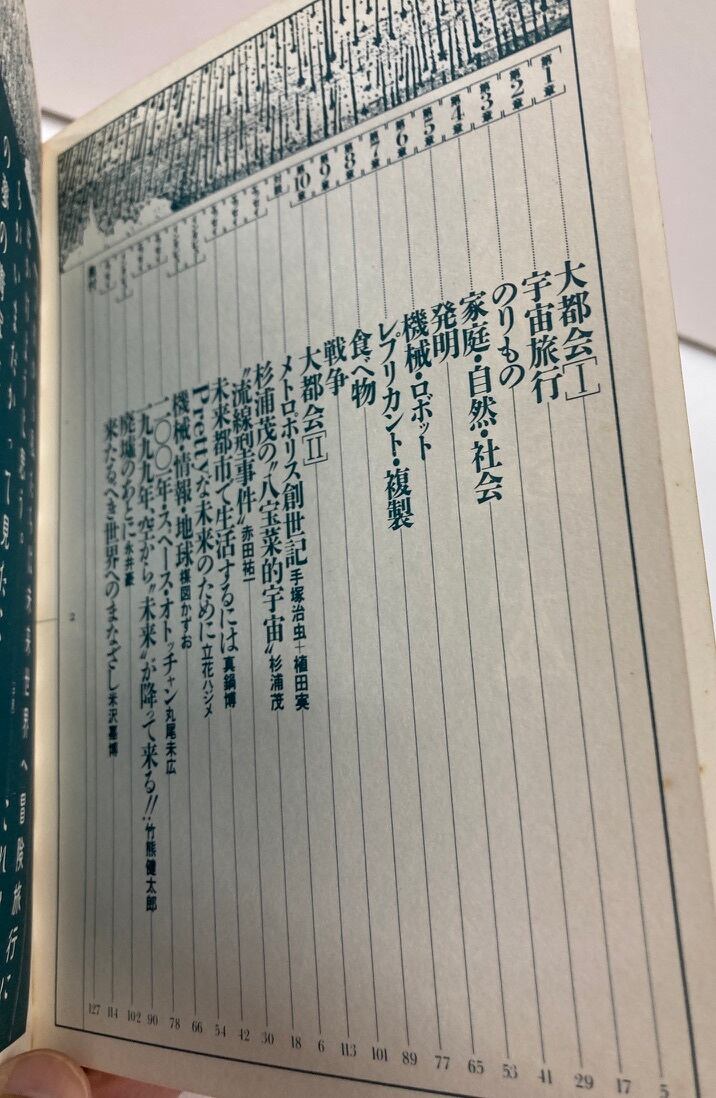 第1章 大都会[I] 5
第2章 宇宙旅行 17
第3章 のりもの 29
第4章 家庭・自然・社会 41
第5章 発明 53
第6章 機械・ロボット 65
第7章 レプリカント・複製 77
第8章 食べ物 89
第9章 戦争 101
第10章 大都会[II] 113
メトロポリス創世記 手塚治虫+植田実 6
杉浦茂の"八宝菜的宇宙" 杉浦茂 18
"流線型事件" 赤田祐一 30
未来都市で生活するには 真鍋博 42
Prettyな未来のために 立花ハジメ 54
機械・情報・地球 楳図かずお 66
二一〇〇年・スペース・オトッチャン 丸尾末広 78
一九九九年、空から"未来"が降って来る!! 竹熊健太郎 90
廃墟のあとに 永井豪 102
来たるべき世界へのまなざし 米沢嘉博 114
127
2
未来世界へ冒険旅行に